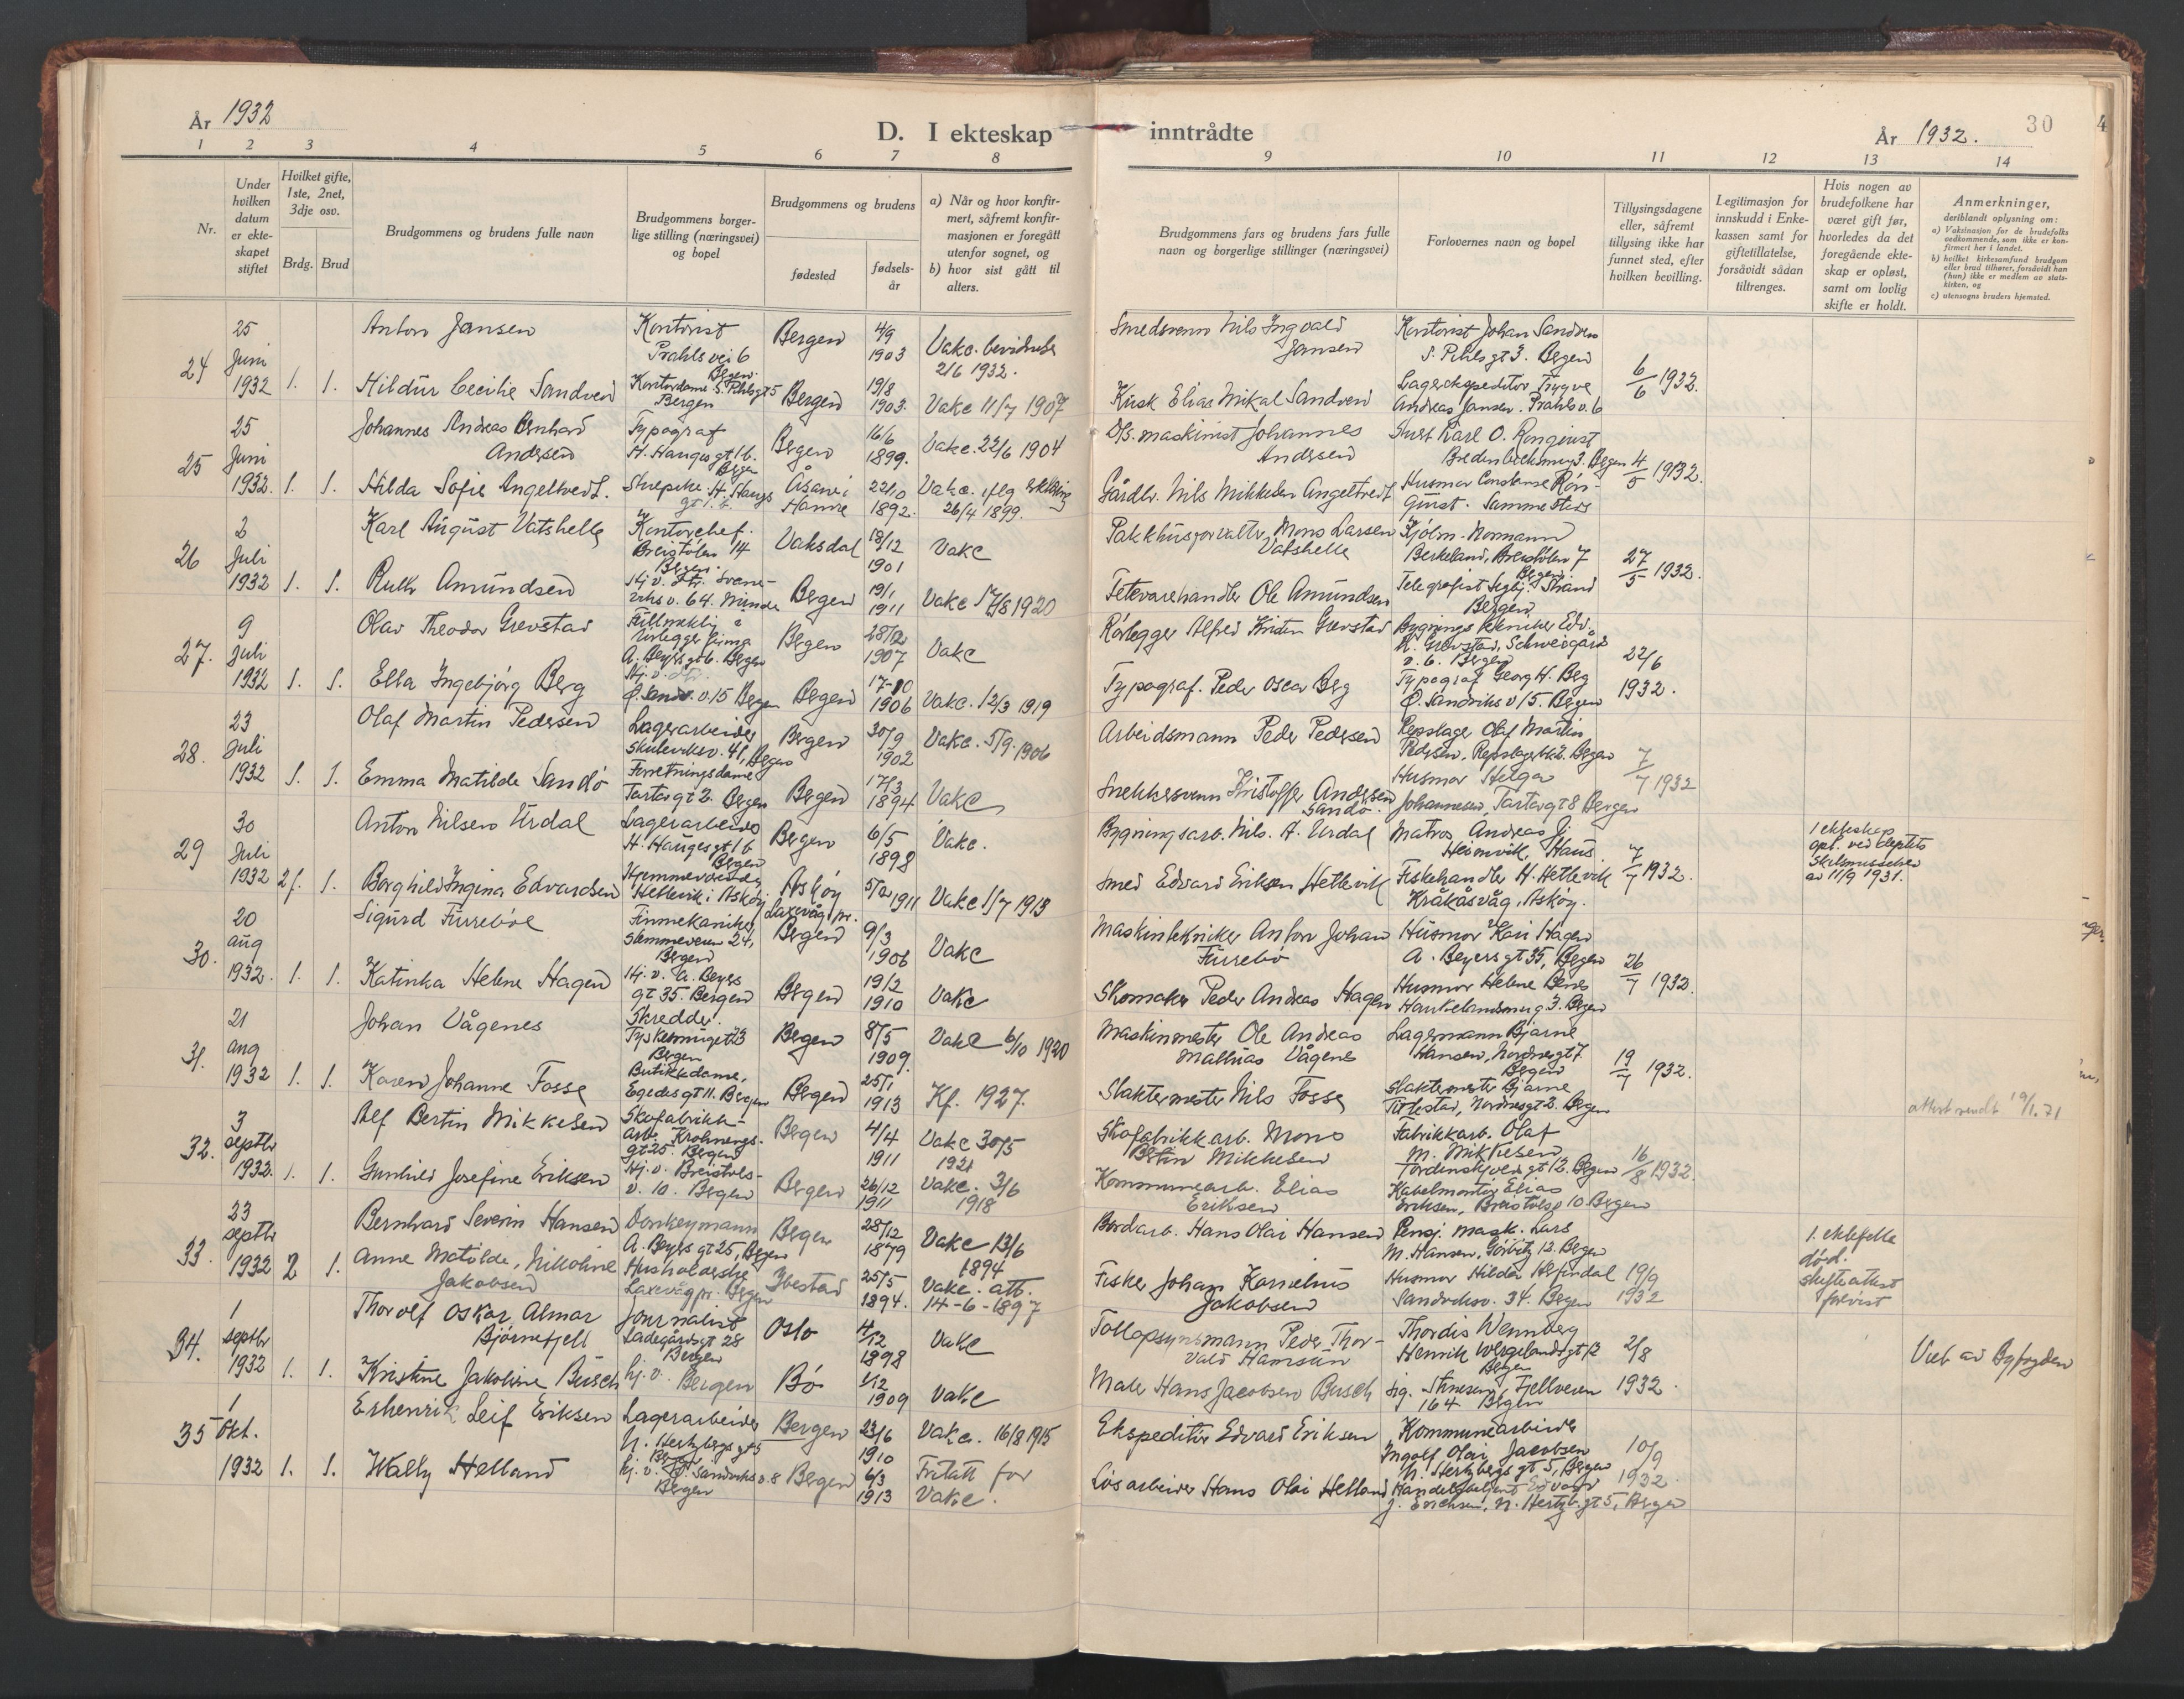 År 1932
D. I ekteskap inntrådte
År 1932.
30
1 2 3 4 5 6 7 8 9 10 11 12 13 14
Nr.
Under hvilken datum er ekteskapet stiftet
Hvilket gifte, 1ste, 2net, 3dje osv.
Brdg. Brud
Brudgommens og brudens fulle navn
Brudgommens borgerlige stilling (næringsvei) og bopel
Brudgommens og brudens
fødested
fødselsår
a) Når og hvor konfirmert, såfremt konfirmasjonen er foregått utenfor sognet, og
b) hvor sist gått til alters.
Brudgommens fars og brudens fars fulle navn og borgerlige stillinger (næringsvei)
Forlovernes navn og bopel
Tillysingsdagene eller, såfremt tillysing ikke har funnet sted, efter hvilken bevilling.
Legitimasjon for innskudd i Enkekassen samt for giftetillatelse, forsåvidt sådan tiltrenges.
Hvis nogen av brudefolkene har været gift før, hvorledes da det foregående ekteskap er opløst, samt om lovlig skifte er holdt.
Anmerkninger,
deriblandt oplysning om:
a) Vaksinasjon for de brudefolks vedkommende, som ikke er konfirmert her i landet.
b) hvilket kirkesamfund brudgom eller brud tilhører, forsåvidt han (hun) ikke er medlem av statskirken, og
c) utensogns bruders hjemsted.
24 25 Juni 1932 1. 1.
Anton Jansen
Kontorist Prahls vei 6 Bergen.
Bergen 4/9 1903
Vakc. 2/6 1932.
Smedsvenn Nils Ingvald Jansen
Kontorist Johan Sandven S. Pihls gt 3. Bergen
6/6 1932.
Hildur Cecilie Sandven
Kontordame S. Pihlsgt 5 Bergen
Bergen 19/8 1903.
Vakc 11/7 1907
Kusk Elias Mikal Sandven
Lagerekspeditør Trygve Andreas Jansen. Prahls v. 6
25 25 Juni 1932. 1. 1.
Johannes Andreas Bernhard Andersen
Typograf H. Hauges gt 1 b. Bergen
Bergen 16/6 1899.
Vakc. 22/6 1904
D/S. maskinist Johannes Andersen
Karl O. Bergen
4/5 1932.
Hilda Sofie Angeltvedt.
H. Haugs gt 1. b.
Åsane i Hamre 22/10 1892.
Vakc. 26/4 1899.
Gårdbr. Nils Mikkelsen Angeltvedt
Husmor Constanse Samme sted
26 2 Juli 1932 1. 1.
Karl August Vatshelle
Kontorchef. Breistølen 14 Bergen.
Vaksdal 18/12 1901
Vakc
Pakkhusforvalter Mons Larsen Vatshelle
Normann Berkeland, Breistølen 7 Bergen
27/5 1932.
Ruth Amundsen
Hj. v. 64. Minde
Bergen 19/1 1911
Vakc 17/8 1920
Fetevarehandler Ole Amundsen
Telegrafist Strand Bergen
27. 9 Juli 1932 1. 1.
Olav Theodor Grevstad
rørlegger firma A. Beyers gt 6. Bergen
Bergen 28/12 1907
Vakc
Rørlegger Alfred Kristen Grevstad
Bygnings tekniker Edv. K. Grevstad, Schweigårds v. 6. Bergen
22/6 1932.
Ella Ingebjørg Berg
Hj. v. Ø. Sandv. v. 15 Bergen
Bergen 17-10 1906
Vakc. 12/3 1919
Typograf. Peder Oscar Berg
Typograf Georg H. Berg Ø. Sandviks v 15. Bergen
28. 23 Juli 1932 1. 1.
Olaf Martin Pedersen
Lagerarbeider Skuteviksv. 41, Bergen
Bergen 30/9 1902
Vakc. 5/9. 1906
Arbeidsmann Peder Pedersen
Repslager Olaf Martin Pedersen, Bergen
7/7 1932
Emma Matilde Sandø
Forretningsdame Tartargt 2. Bergen
Bergen 17/3 1894
Vakc
Snekkersvenn Kristoffer Andersen Sandø.
Husmor Helga Johannesen, Tartargt 8 Bergen
29 30 Juli 1932 2 f. 1.
Anton Nilsen Urdal
Lagerarbeider H. Hauges gt 1 b Bergen
Bergen 6/5 1898
Vakc.
Bygningsarb. Nils. A. Urdal
Matros Andreas J. Heimvik, Haus.
7/7 1932.
1 ekteskap opl. ved skilsmissebev av 11/9 1931.
Borghild Ingina Edvardsen
Hjemmeværende Hetlevik i Askøy
Askøy 1911
Vakc 1/7 1913
Smed Edvard Eriksen Hetlevik
Fiskehandler H. Hetlevik Kråkåsvåg, Askøy.
30. 20 aug 1932. 1. 1.
Sigurd Furrebøe
Finmekaniker, Stemmeveien 24, Bergen
Laxevåg pr. Bergen 9/3 1906
Vakc
Maskintekniker Anton Johan Furrebø
Husmor Kari Hagen A. Beyers gt 35, Bergen
26/7 1932.
Katinka Helene Hagen
Hj. v. A. Beyers gt 35. Bergen
Bergen 19/2 1910
Vakc
Skomaker Peder Andreas Hagen
Husmor Helene Haukelandsmug 3. Bergen
31. 21 aug 1932 1. 1.
Johan Vågenes
Skredder. Tyskesmuget 23 Bergen
Bergen 8/5 1909.
Vakc 6/10 1920
Maskinmester Ole Andreas Mathias Vågenes
Lagermann Bjarne Hansen, Nordnesgt 7 Bergen
19/7 1932.
Karen Johanne Fosse
Butikkdame, Egedes gt 11. Bergen
Bergen 25/1 1913
Kf. 1927.
Slaktermester Nils Fosse
Slaktermester Bjarne Nordnesgt 2. Bergen
attest sendt 19/1.71
32. 3 septbr 1932. 1. 1.
Alf Bertin Mikkelsen
Skofabrikkarb. Krohnengs. gt 25. Bergen
Bergen 4/4 1911
Vakc 30/5 1921
Skofabrikkarb. Mons Bertin Mikkelsen
Fabrikkarb. Olaf M. Mikkelsen Tordenskjolds gt 12. Bergen
16/8 1932.
Gunhild Josefine Eriksen
Hj. v. Breistøls v. 10. Bergen
Bergen 26/12 1911
Vakc. 3/6 1918
Kommunearb. Elias Eriksen
Kabelmontør Elias Eriksen, Breistølsv 10 Bergen
33. 23 septbr 1932 2 1.
Bernhard Severin Hansen
Donkeymann A. Beyers gt 25, Bergen
Bergen 28/12 1879
Vakc 13/6 1894
Bordarb. Hans Olai Hansen
Pensj. mask. Lars M. Hansen, 12. Bergen
19/9 1932
1. ektefelle død. skifteattest forevist
Anne Matilde, Nikoline Jakobsen
Husholderske Laxevåg pr. Bergen
Ibestad 25/5 1894.
Vakc. att. 14-6-1897
Fisker Johan Kornelius Jakobsen
Husmor Hilda Sandviksv. 34. Bergen
34. 1 septbr 1932 1. 1.
Thorolf Oskar Almar Bjørnefjell
Journalist Ladegårdsgt 28 Bergen
Oslo 4/12 1898
Vakc
Tollopsynsmann Peder Thorvald Hamsun
Thordis Wennberg Henrik Wergelandsgt 12 Bergen
2/8 1932.
Viet av Byfogden
Kristine Jakobine Busch
hj. v. Bergen
Bø 1/12 1909
Vakc
Maler Hans Jacobsen Busch
Sig. Fjellveien 164 Bergen
35 1 Okt. 1932 1. 1.
Erhenrik Leif Eriksen
Lagerarbeider N. Hertzbergs gt 5 Bergen
Bergen 23/6 1910
Vakc. 16/8 1915
Ekspeditør Edvard Eriksen
Kommunearbeider Ingolf Olai Jacobsen N. Hertzbergs gt 5, Bergen
10/9 1932.
Wally Helland
hj. v. Ø. Sandviksv. 8 Bergen
Bergen 6/3 1913
Fritatt for Vakc.
Løsarbeider Hans Olai Helland
Handelsbetjent Edvard J. Erichsen, N. Hertzb. gt 5, Bergen